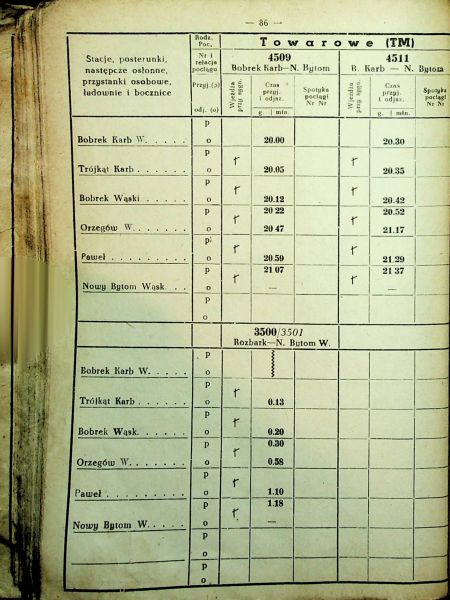 — 86 —
Stacje, posterunki,
następcze osłonne,
przystanki osobowe,
ładownie i bocznice
Rodz.
Poc.
Nr i
relacja
pociągu
Przyj.(p)
odj. (o)
Towarowe (TM)
4509
Bobrek Karb—N. Bytom
4511
B. Karb — N. Bytom
Wjeżdża
przy sygn.
Czas
przyj.
i odjaz.
g. | min.
Spotyka
pociągi
Nr Nr
Wjeżdża
przy sygn.
Czas
przyj.
i odjaz.
g. | min.
Spotyka
pociągi
Nr Nr
p
Bobrek Karb W. . . . . . o 20.00 20.30
p
Trójkąt Karb . . . . . . o 20.05 20.35
p
Bobrek Wąski . . . . . o 20.12 20.42
p 20 22 20.52
Orzegów W. . . . . . . o 20 47 21.17
p
Paweł . . . . . . . . . o 20.59 21.29
p 21 07 21 37
Nowy Bytom Wąsk. . . o — —
p
o
3500/3501
Rozbark—N. Bytom W.
p
Bobrek Karb W. . . . . o
p
Trójkąt Karb . . . . . . o 0.13
p
Bobrek Wąsk. . . . . . o 0.20
p 0.30
Orzegów W. . . . . . . o 0.58
p
Paweł . . . . . . . . . o 1.10
p 1.18
Nowy Bytom W. . . . . o —
p
o
p
o